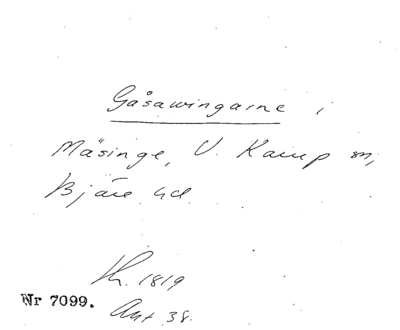 Gåsawingarne i
Mäsinge, V. Karup sn,
Bjäre hd.
Kh. 1819
Nr 7099.
Ant 38.